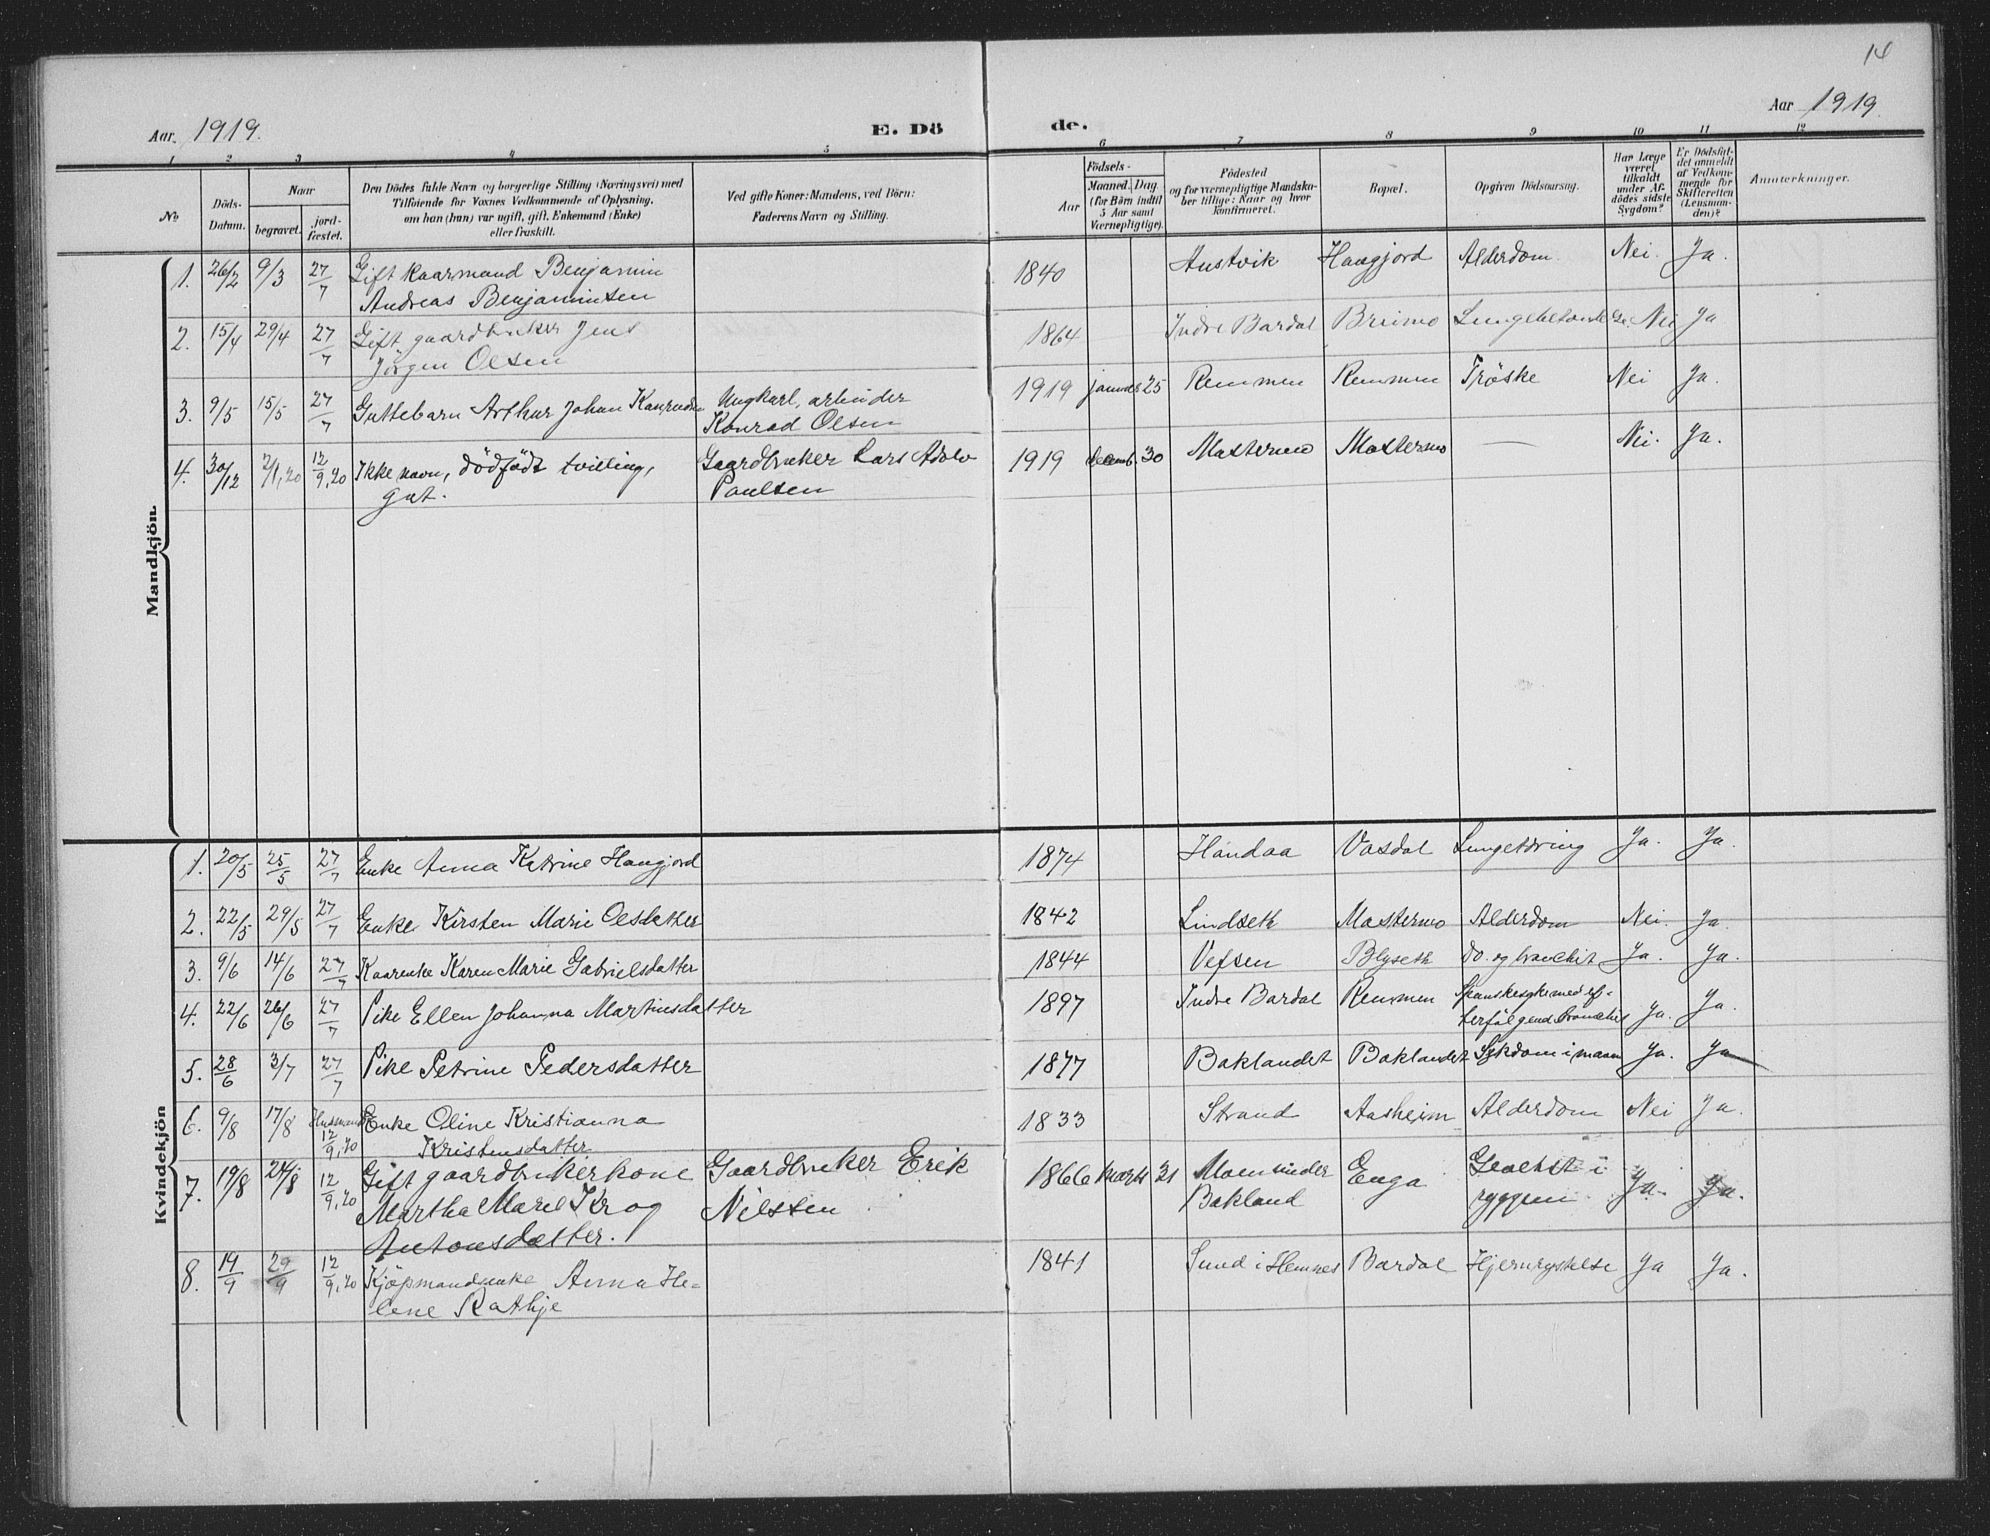 14
Aar 1919.
E. Dö
de.
Aar 1919.
1 2 3 4 5 6 7 8 9 10 11 12
No
Döds-
Datum.
Naar
begravet.
jord-
fæstet.
Den Dödes fulde Navn og borgerlige Stilling (Næringsvei) med
Tilföiende for Voxnes Vedkommende af Oplysning,
om han (hun) var ugift, gift, Enkemand (Enke)
eller fraskilt.
Ved gifte Koner: Mandens, ved Börn:
Faderens Navn og Stilling.
Födsels-
Aar
Maaned. Dag.
(for Börn indtil
5 Aar samt
Værnepligtige).
Födested
og for værnepligtige Mandska-
ber tillige: Naar og hvor
konfirmeret.
Bopæl.
Opgiven Dödsaarsag.
Har Læge
været
tilkaldt
under Af-
dödes sidste
Sygdom?
Er Dödsfal-
det anmeldt
af Vedkom-
mende for
Skifteretten
(Lensman-
den)?
Anmærkninger.
Mandkjön.
1. 26/2 9/3 27/7 Gift kaarmand Benjamin 1840 Austvik Haugjord Alderdom. Nei. Ja.
Andreas Benjaminsen
2. 15/4 29/4 27/7 Gift gaardbruker Jens 1864 Indre Bardal Brunmo Nei Ja
Jörgen Olsen
3. 9/5 15/5 27/7 Guttebarn Arthur Johan Ungkarl, arbeider 1919 januar 25 Remmen Remmen Tröske Nei Ja.
Konrad Olsen
4. 30/12 2/1,20 12/9,20 Ikke navn, dödfödt tvilling, Gaardbruker Lars Adolv 1919 decemb. 30 Mastermo Mastermo — Nei. Ja.
gut. Paulsen
Kvindekjön
1. 20/5 25/5 27/7 Enke Anna Katrine Haugjord 1874 Handaa Vasdal Lungetæring Ja. Ja.
2. 22/5 29/5 27/7 Enke Kirsten Marie Olsdatter 1842 Lindseth Mastermo Alderdom Nei. Ja.
3. 9/6 14/6 27/7 Kaarenke Karen Marie Gabrielsdatter 1844 Vefsen Blyseth Do. og bronchit Ja. Ja.
4. 22/6 26/6 27/7 Pike Ellen Johanna Martinsdatter 1897 Indre Bardal Remmen Spanskesyke med ef-
terfölgend Bronchit Ja. Ja.
5. 28/6 3/7 27/7 Pike Petrine Pedersdatter 1877 Baklandet Baklandet Sykdom i maven Ja. Ja
6. 9/8 17/8 12/9,20 Enke Oline Kristianna 1833 Strand Aasheim Alderdom Nei Ja.
Kristensdatter
7. 19/8 24/8 12/9,20 Gift gaardbrukerkone Gaardbruker Erik 1866 marts 31 Moen under Enga i Ja. Ja.
Martha Marel Krog Nilssen Bakland ryggen
Antonsdatter.
8. 19/9 29/9 12/9,20 Kjöpmandsenke Anna He- 1841 Sund i Hemnes Bardal Hjernrystelse Ja Ja.
lene Rathje